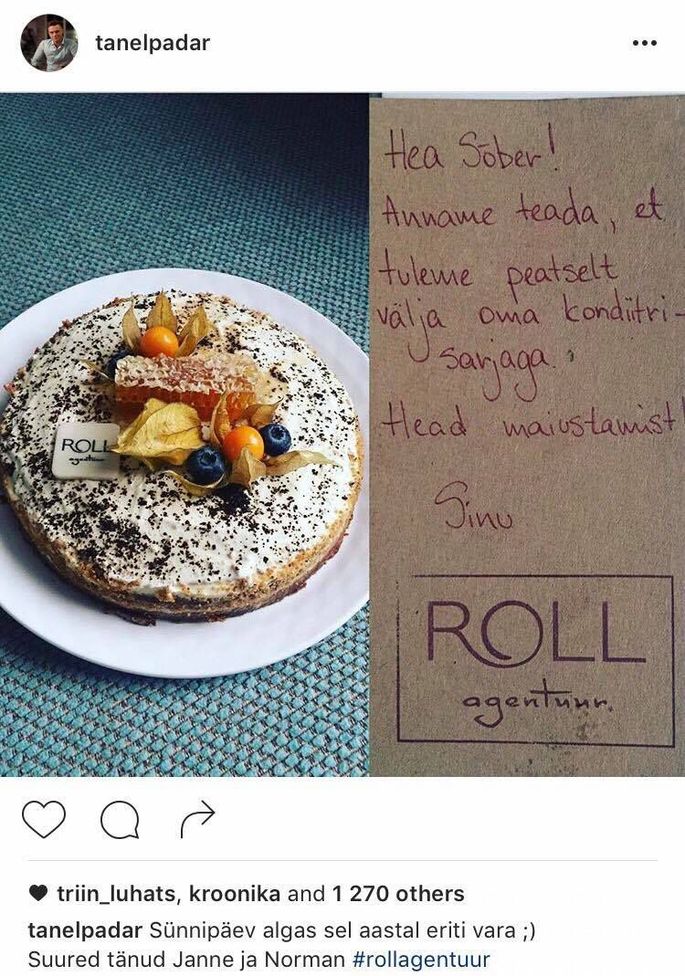 tanelpadar
Hea Sõber!
Anname teada, et
tuleme peatselt
välja oma kondiitri-
sarjaga.
Head maiustamist!
Sinu
ROLL
agentuur.
ROLL
agentuur
triin_luhats, kroonika and 1 270 others
tanelpadar Sünnipäev algas sel aastal eriti vara ;)
Suured tänud Janne ja Norman #rollagentuur